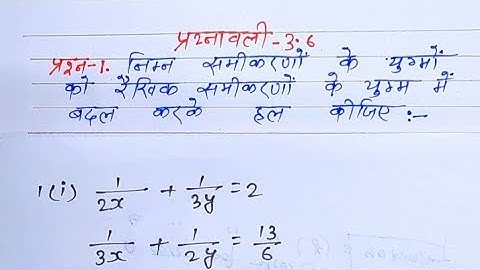 प्रश्नावली - 3.6
प्रश्न-1. निम्न समीकरणों के युग्मों
को रैखिक समीकरणों के युग्म में
बदल करके हल कीजिए :-
1(i) 1/2x + 1/3y = 2
1/3x + 1/2y = 13/6